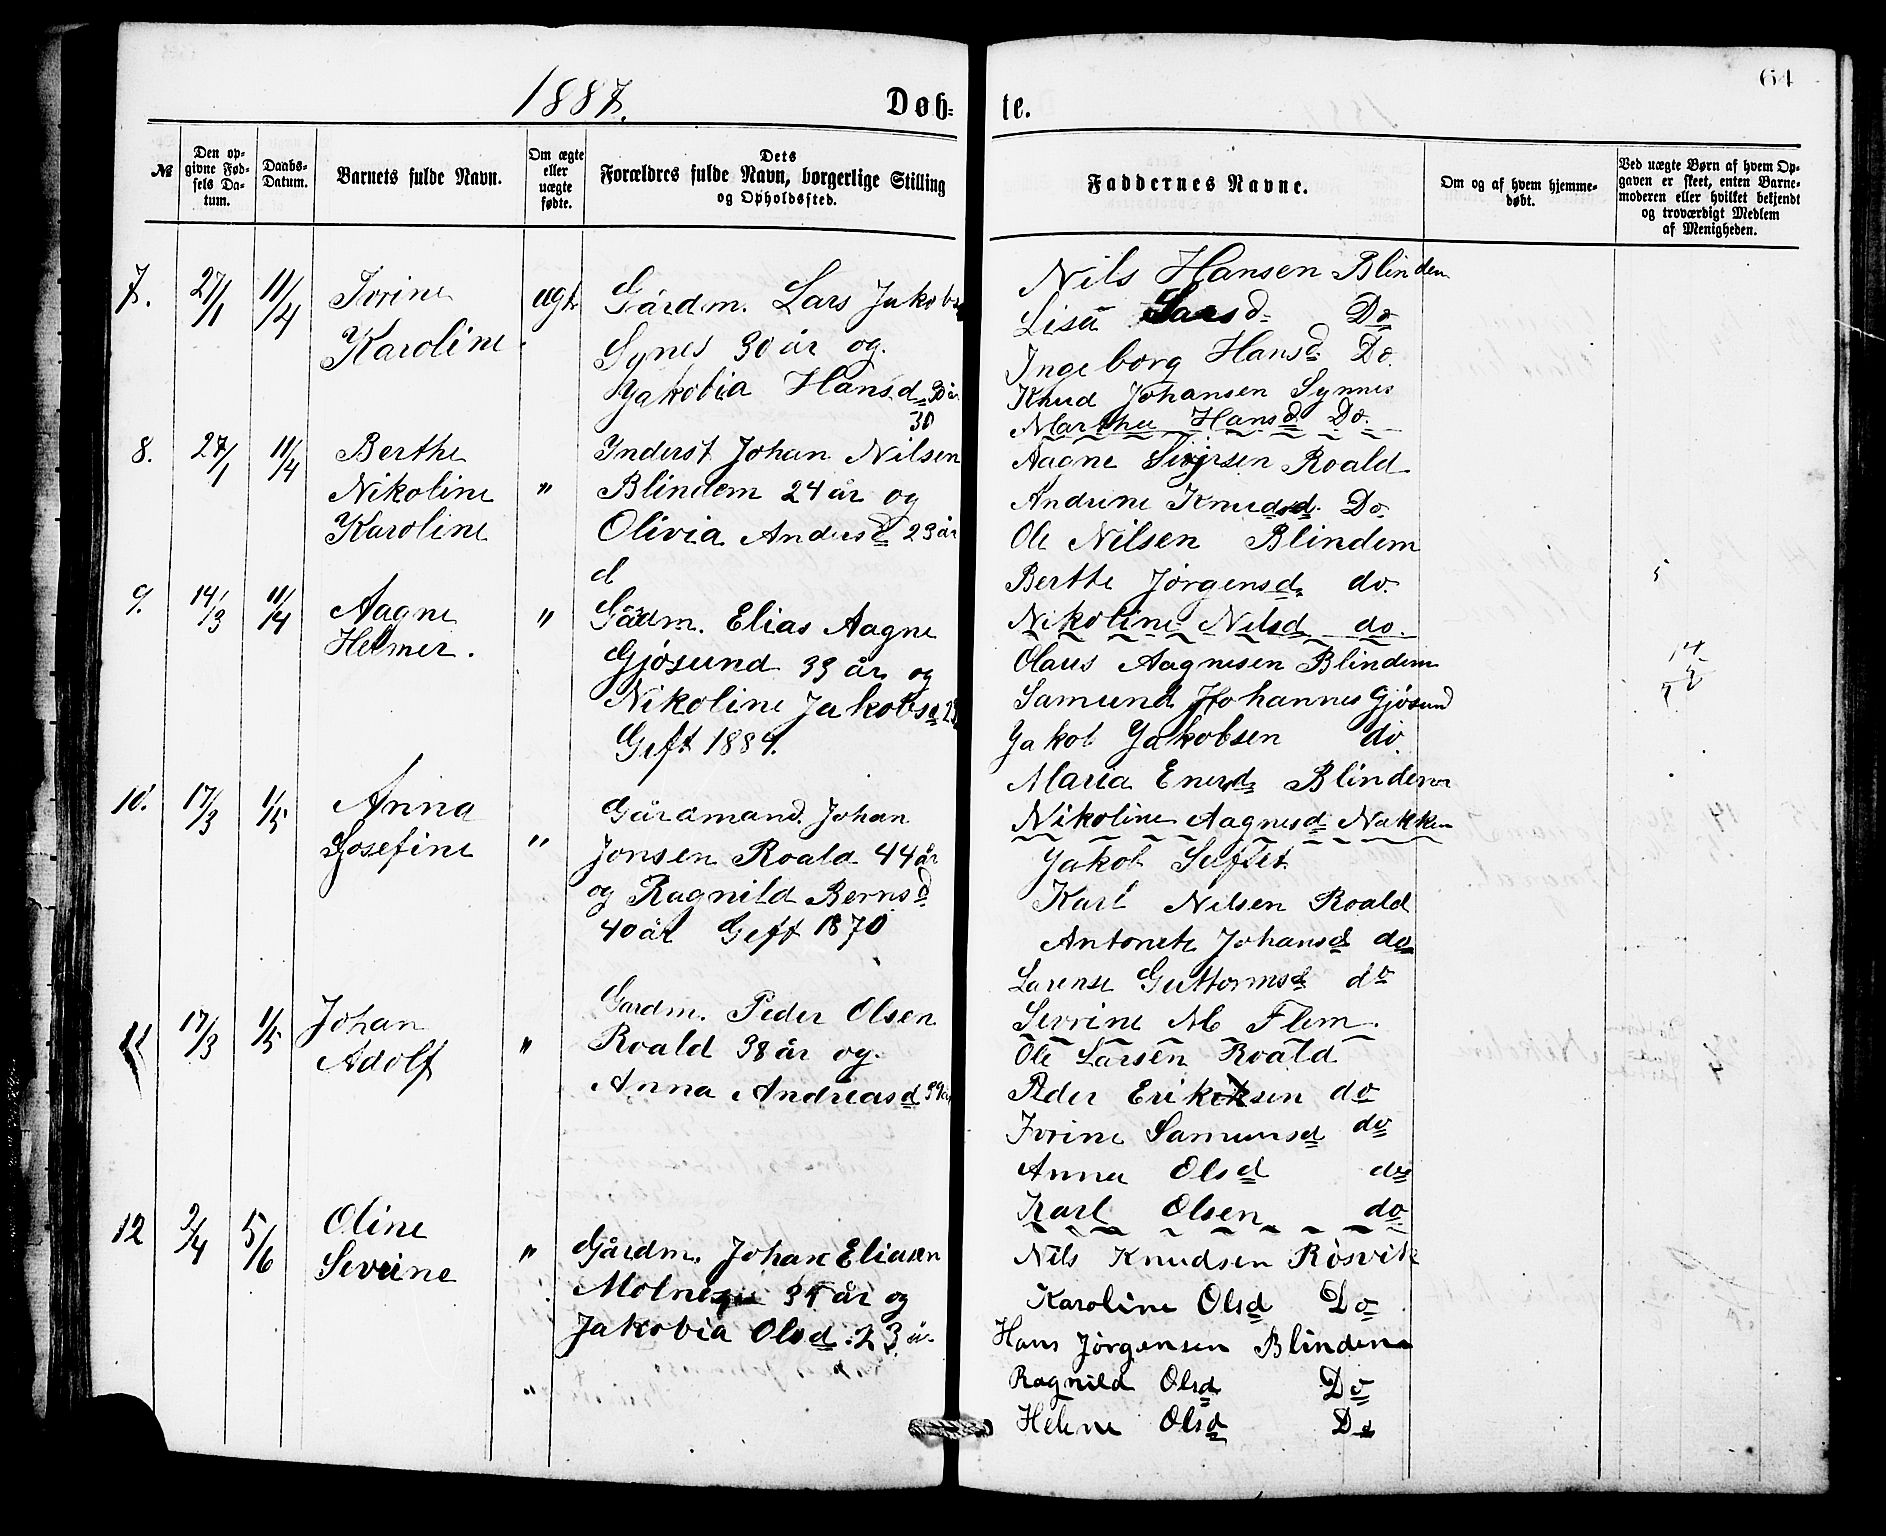 64
1887.
Døb-
te.
№
Den op-
givne Fød-
sels Da-
tum.
Daabs-
Datum.
Barnets fulde Navn.
Om ægte
eller
uægte
fødte.
Dets
Forældres fulde Navn, borgerlige Stilling
og Opholdssted.
Faddernes Navne.
Om og af hvem hjemme-
døbt.
Ved uægte Børn af hvem Op-
gaven er skeet, enten Barne-
moderen eller hvilket bekjendt
og troværdigt Medlem
af Menigheden.
7. 27/1 11/4 Ivrine
Karoline
ægte
Gårdm. Lars Jakobs
Synes 30 år og
Jakobia Hansd 30 år
30
Nils Hansen Blindem
Lisa Larsd Do
Ingeborg Hansd Do
Knud Johansen Synnes
Martha Hansd Do.
8. 27/1 11/4 Berthe
Nikoline
Karoline
"
Inderst Johan Nilsen
Blindem 24 år og
Olivia Andersd 23 år
d
Aagne Sivjrsen Roald
Andrine Knudsd. Do
Ole Nilsen Blindem
Berthe Jørgensd. do.
Nikoline Nilsd do.
9. 14/3 11/4 Aagne
Helmer.
"
Gårdm. Elias Aagne
Gjøsund 33 år og
Nikoline Jakobsd
Gift 1884.
Olaus Aagnesen Blindem
Samund Johannes Gjøsund
Jakob Jakobsen do.
Maria Enersd Blindem
Nikoline Aagnesd Nakken
10. 17/3 1/5 Anna
Josefine
"
Gårdmand. Johan
Jonsen Roald 44 år
og Ragnild Bernsd
40 år Gift 1870
Jakob
Karl Nilsen Roald
Antonete Johansd do
Larense Guttormsd do
Sevrine M Flem.
11 17/3 1/5 Johan
Adolf
"
Gardm. Peder Olsen
Roald 38 år og
Anna Andreasd 39 år
Ole Larsen Roald
Peder Eriksen do
Ivrine Samunsd do
Anna Olsd do
Karl Olsen do
12 2/4 5/6 Oline
Seveine
"
Gårdm. Johan Eliasen
Molnes 34 år og
Jakobia Olsd. 23 år
"
Nils Knudsen Røsvik
Karoline Olsd Do
Hans Jørgensen Blindem
Ragnild Olsd Do
Helene Olsd Do